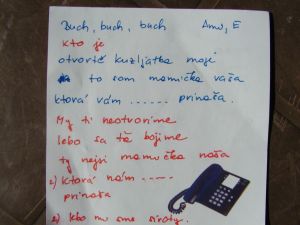 Buch, buch, buch Ami, E
kto je
otvorte kuzljatka moje
to som mamička vaša
ktorá vám ...... prináša.
My ti neotvoríme
lebo sa tě bojíme
ty nejsi mamička naša
2) ktorá nám .....
prináša
2) kto mu sme siroty.